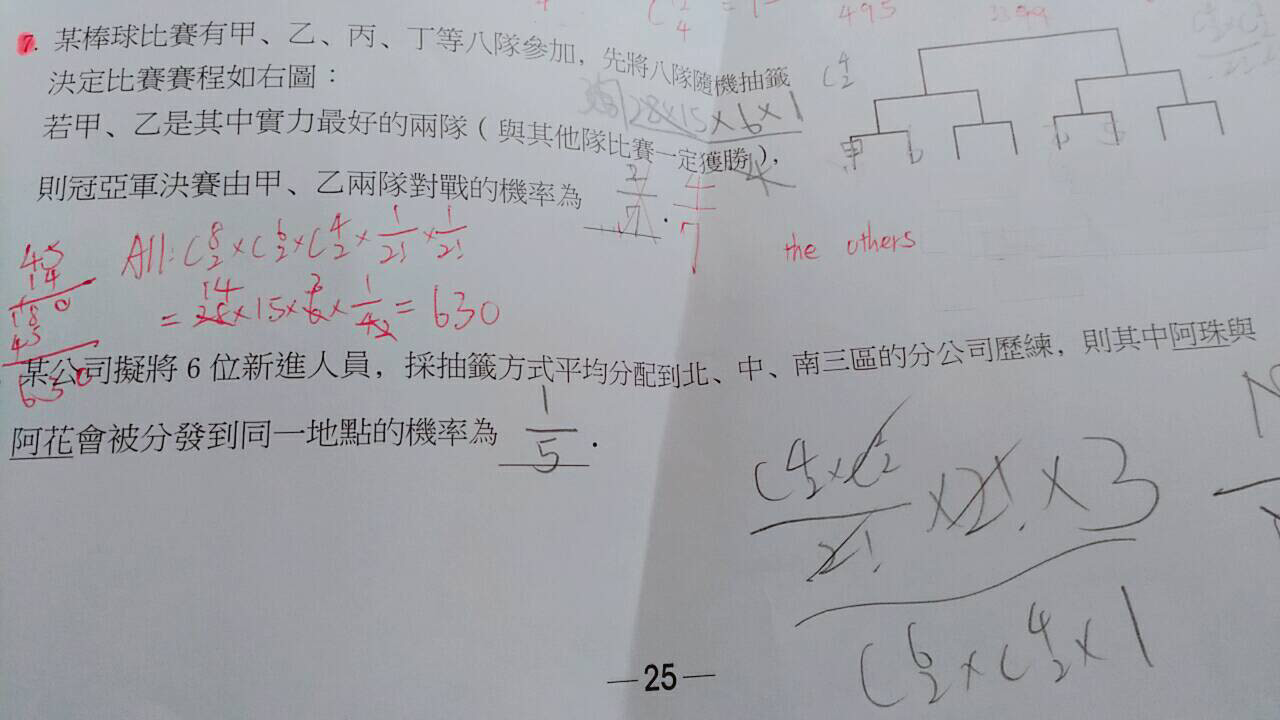 7. 某棒球比賽有甲、乙、丙、丁等八隊參加，先將八隊隨機抽籤
決定比賽賽程如右圖：
若甲、乙是其中實力最好的兩隊（與其他隊比賽一定獲勝），
則冠亞軍決賽由甲、乙兩隊對戰的機率為 2/7 . 4/7
28×15×6×1
C 4 2
甲
495
the others
All: C 8 2 × C 6 2 × C 4 2 × 1/2! × 1/2!
= 28×15×6× 1/4 = 630
14
45
14
180
45
630
某公司擬將 6 位新進人員，採抽籤方式平均分配到北、中、南三區的分公司歷練，則其中阿珠與
阿花會被分發到同一地點的機率為 1/5 .
C 4 2 × C 2 2
2! × 2! × 3
C 6 2 × C 4 2 × 1
—25—